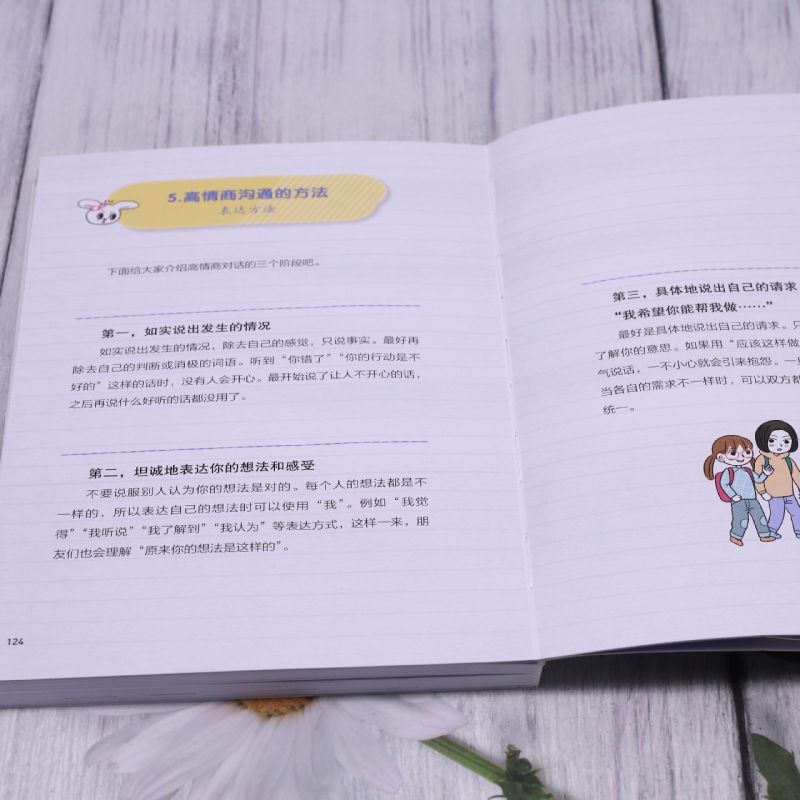 5.高情商沟通的方法
表达方法
下面给大家介绍高情商对话的三个阶段吧。
第一，如实说出发生的情况
如实说出发生的情况，除去自己的感觉，只说事实。最好再
除去自己的判断或消极的词语。听到“你错了”“你的行动是不
好的”这样的话时，没有人会开心。最开始说了让人不开心的话，
之后再说什么好听的话都没用了。
第二，坦诚地表达你的想法和感受
不要说服别人认为你的想法是对的。每个人的想法都是不
一样的，所以表达自己的想法时可以使用“我”。例如“我觉
得”“我听说”“我了解到”“我认为”等表达方式，这样一来，朋
友们也会理解“原来你的想法是这样的”。
124
第三，具体地说出自己的请求
“我希望你能帮我做……”
最好是具体地说出自己的请求。只
了解你的意思。如果用“应该这样做
气说话，一不小心就会引来抱怨。一
当各自的需求不一样时，可以双方都
统一。